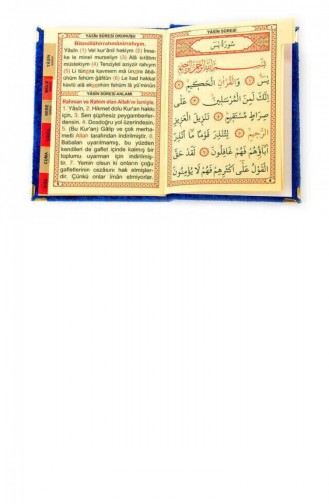 YÂSİN SÛRESİ OKUNUŞU
Bismillâhirrahmânirrahîym.
Yâsîn (1) Vel kur'ânil hakîym (2) İnne-
ke le minel mürselîyn (3) Alâ sırâtım
müstekıym (4) Tenziylel aziyzir rahıym
(5) Li tünzira kavmem mâ ünzira âbâ-
ühüm fehüm ğâfilûn (6) Le kad hakkal
kavlü alâ ekserihim fehüm lâ yü'minûn
YÂSİN SÛRESİ ANLAMI
Rahman ve Rahim olan Allah'ın ismiyle.
1. Yâsîn, 2. Hikmet dolu Kur'an hakkı
için, 3. Sen şüphesiz peygamberler-
densin. 4. Dosdoğru yol üzerindesin.
5. (Bu Kur'an) Gâlip ve çok merha-
metli Allah tarafından indirilmiştir. 6.
Babaları uyarılmamış, bu yüzden
kendileri de gaflet içinde kalmış bir
toplumu uyarman için indirilmiş-
tir. 7. Yemin olsun ki onların çoğu
gafletlerinin cezâsını hak etmişler-
dir. Çünkü onlar îman etmiyorlar.
YÂSİN
CUMA
YÂSİN SÛRESİ
سُورَةُ يٰسٓ
بِسْمِ اللّٰهِ الرَّحْمٰنِ الرَّحِيمِ
يٰسٓ ۝ وَالْقُرْاٰنِ الْحَكِيمِ ۝
اِنَّكَ لَمِنَ الْمُرْسَلِينَ ۝ عَلٰى
صِرَاطٍ مُسْتَقِيمٍ ۝ تَنْزِيلَ الْعَزِيزِ
الرَّحِيمِ ۝ لِتُنْذِرَ قَوْمًا مَا اُنْذِرَ
اٰبَاؤُهُمْ فَهُمْ غَافِلُونَ ۝ لَقَدْ حَقَّ
الْقَوْلُ عَلٰى اَكْثَرِهِمْ فَهُمْ لَا يُؤْمِنُونَ